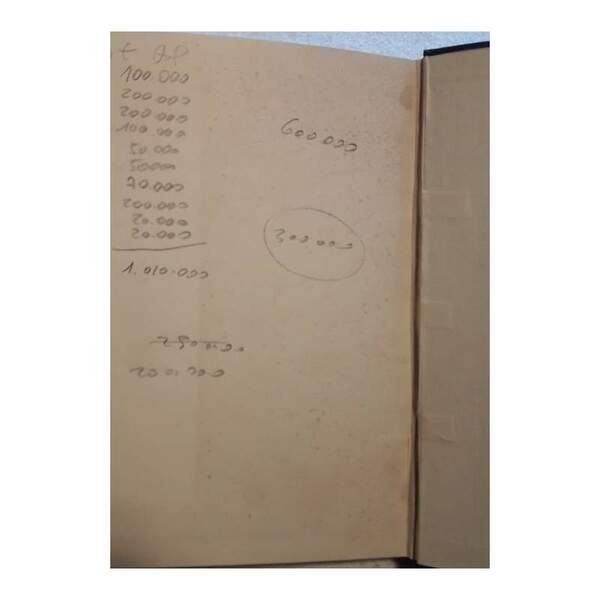 100.000
200.000
200.000
100.000
50.000
50000
70.000
200.000
20.000
20.000
1.010.000
200.000
600.000
300.000